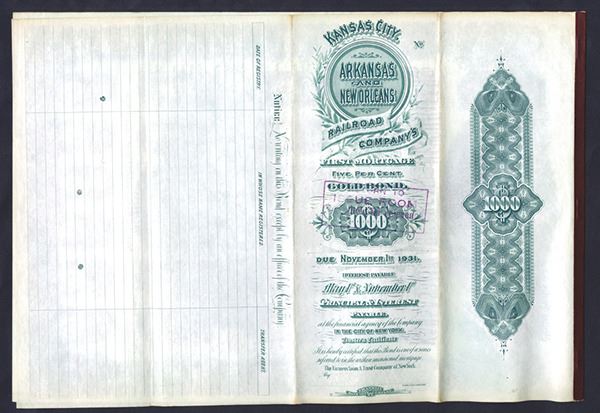 DATE OF REGISTRY.
IN WHOSE NAME REGISTERED.
TRANSFER AGENT.
Notice: No writing on this Bond except by an officer of the Company
KANSAS CITY,
No
ARKANSAS
AND
NEW ORLEANS
RAILROAD
COMPANY'S
FIRST MORTGAGE
FIVE PER CENT.
GOLD BOND.
ISSUE ROOM
1000
DUE NOVEMBER 1st 1931.
INTEREST PAYABLE
May 1st & November 1st
PRINCIPAL & INTEREST
PAYABLE,
at the financial agency of the Company
IN THE CITY OF NEW YORK.
Trustee's Certificate
It is hereby certified that this Bond is one of a series
referred to in the within mentioned mortgage.
The Farmers Loan & Trust Company of New York.
By
1000